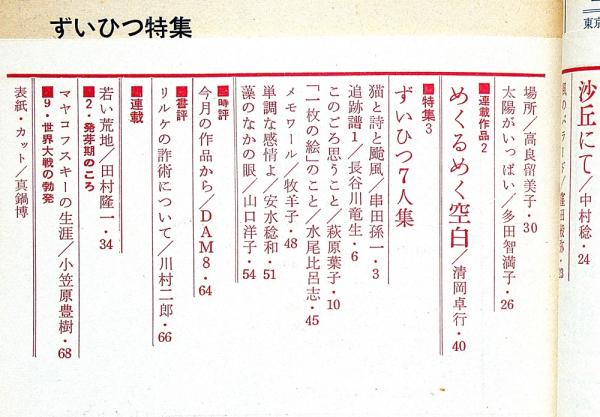 ずいひつ特集
東京
沙丘にて／中村稔・24
場所／高良留美子・30
太陽がいっぱい／多田智満子・26
■連載作品2
めくるめく空白／清岡卓行・40
■特集3
ずいひつ7人集
猫と詩と颱風／串田孫一・3
追跡譜1／長谷川竜生・6
このごろ思うこと／萩原葉子・10
「一枚の絵」のこと／水尾比呂志・45
メモワール／牧羊子・48
単調な感情よ／安水稔和・51
藻のなかの眼／山口洋子・54
■時評
今月の作品から／DAM8・64
■書評
リルケの詐術について／川村二郎・66
■連載
若い荒地／田村隆一・34
■2・発芽期のころ
マヤコフスキーの生涯／小笠原豊樹・68
■9・世界大戦の勃発
表紙・カット／真鍋博